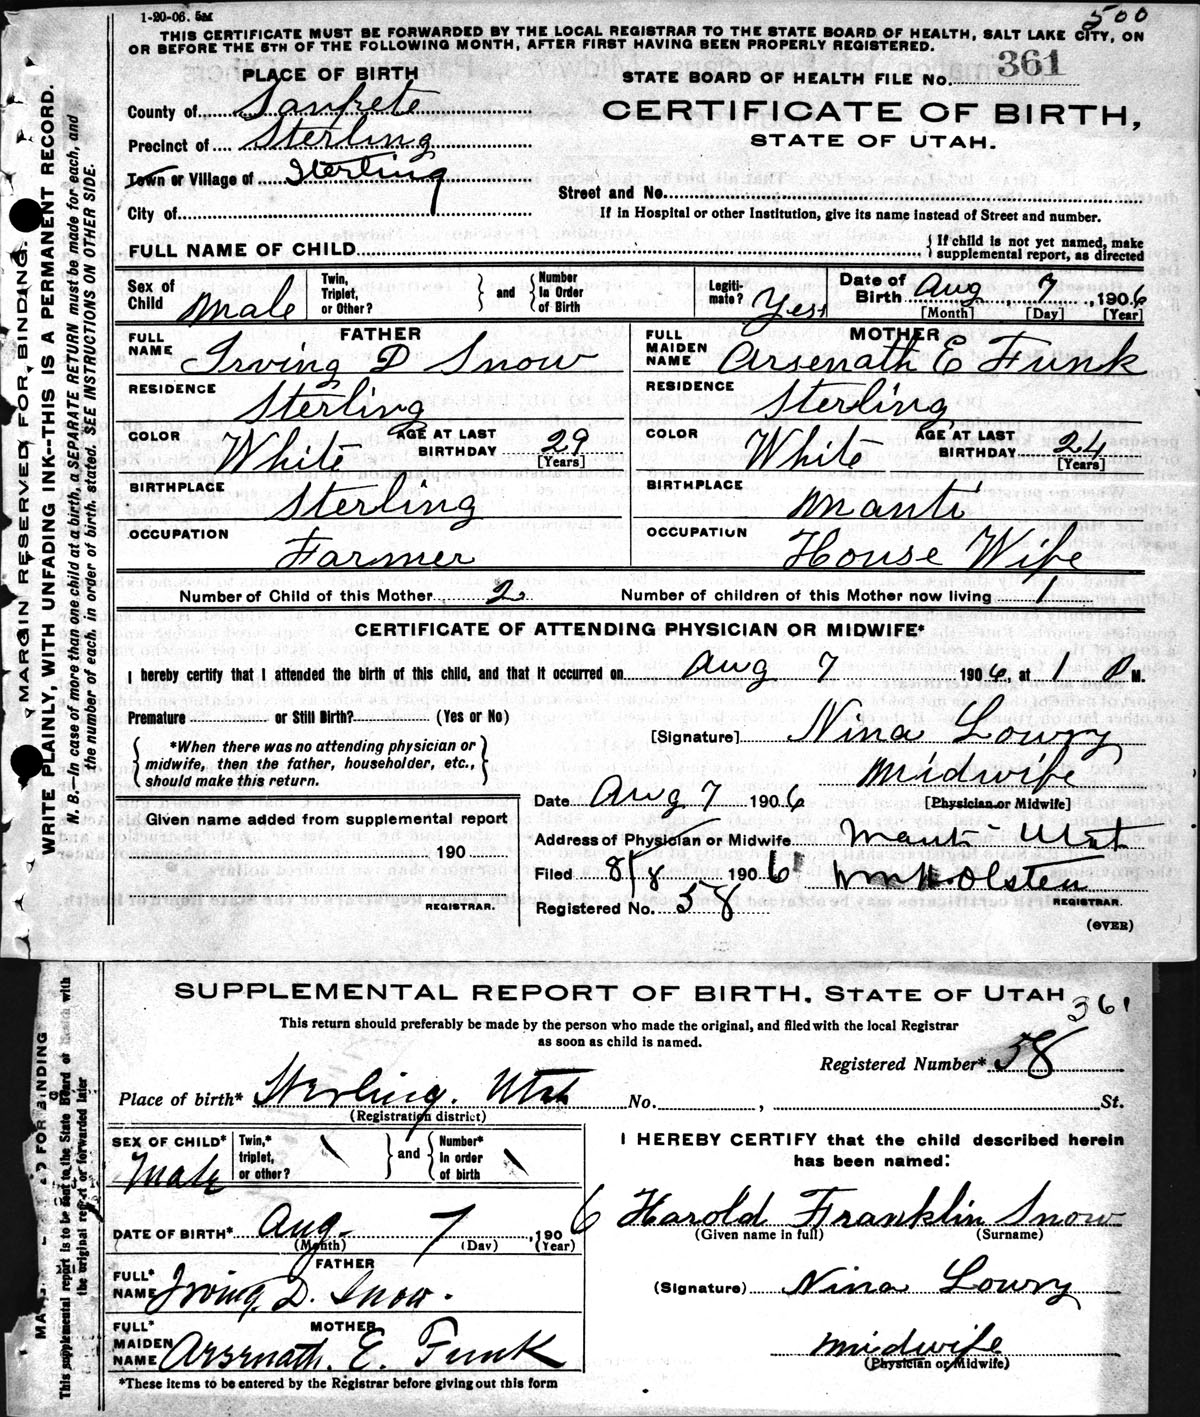 1-20-06. 5M
500
THIS CERTIFICATE MUST BE FORWARDED BY THE LOCAL REGISTRAR TO THE STATE BOARD OF HEALTH, SALT LAKE CITY, ON
OR BEFORE THE 5TH OF THE FOLLOWING MONTH, AFTER FIRST HAVING BEEN PROPERLY REGISTERED.
PLACE OF BIRTH
STATE BOARD OF HEALTH FILE No. 361
County of Sanpete
CERTIFICATE OF BIRTH,
Precinct of Sterling
STATE OF UTAH.
Town or Village of Sterling
Street and No.
City of
If in Hospital or other Institution, give its name instead of Street and number.
FULL NAME OF CHILD
{ If child is not yet named, make
supplemental report, as directed
Sex of Child Male
Twin, Triplet, or Other? } and { Number In Order of Birth
Legiti-mate? Yes
Date of Birth Aug, 7, 1906
[Month] [Day] [Year]
FATHER
MOTHER
FULL NAME Irving D Snow
FULL MAIDEN NAME Arsenath E Funk
RESIDENCE Sterling
RESIDENCE Sterling
COLOR White AGE AT LAST BIRTHDAY 29 [Years]
COLOR White AGE AT LAST BIRTHDAY 24 [Years]
BIRTHPLACE Sterling
BIRTHPLACE Manti
OCCUPATION Farmer
OCCUPATION House Wife
Number of Child of this Mother 2 Number of children of this Mother now living 1
CERTIFICATE OF ATTENDING PHYSICIAN OR MIDWIFE*
I hereby certify that I attended the birth of this child, and that it occurred on Aug 7 1906, at 1 P M.
Premature or Still Birth? (Yes or No)
[Signature] Nina Lowry
{ *When there was no attending physician or
midwife, then the father, householder, etc.,
should make this return. }
Midwife
[Physician or Midwife]
Date Aug 7 1906
Given name added from supplemental report
190
REGISTRAR.
Address of Physician or Midwife Manti Utah
Filed 8/8 1906 Wm H Olsten
REGISTRAR.
Registered No. 58
(OVER)
MARGIN RESERVED FOR BINDING.
WRITE PLAINLY, WITH UNFADING INK--THIS IS A PERMANENT RECORD.
N. B.--In case of more than one child at a birth, a SEPARATE RETURN must be made for each, and
the number of each, in order of birth, stated. SEE INSTRUCTIONS ON OTHER SIDE.
SUPPLEMENTAL REPORT OF BIRTH, STATE OF UTAH
361
This return should preferably be made by the person who made the original, and filed with the local Registrar
as soon as child is named.
Registered Number* 58
Place of birth* Sterling. Utah No. , St.
(Registration district)
SEX OF CHILD* Male
Twin,* triplet, or other? } and { Number* In order of birth
I HEREBY CERTIFY that the child described herein
has been named:
DATE OF BIRTH* Aug. 7, 1906
(Month) (Day) (Year)
Harold Franklin Snow
(Given name in full) (Surname)
FATHER
FULL* NAME Irving D. Snow.
(Signature) Nina Lowry
MOTHER
FULL* MAIDEN NAME Arsenath. E. Funk
Midwife
(Physician or Midwife)
*These items to be entered by the Registrar before giving out this form
D FOR BINDING
This supplemental report is to be sent to the State Board of Health with
the original report or forwarded later